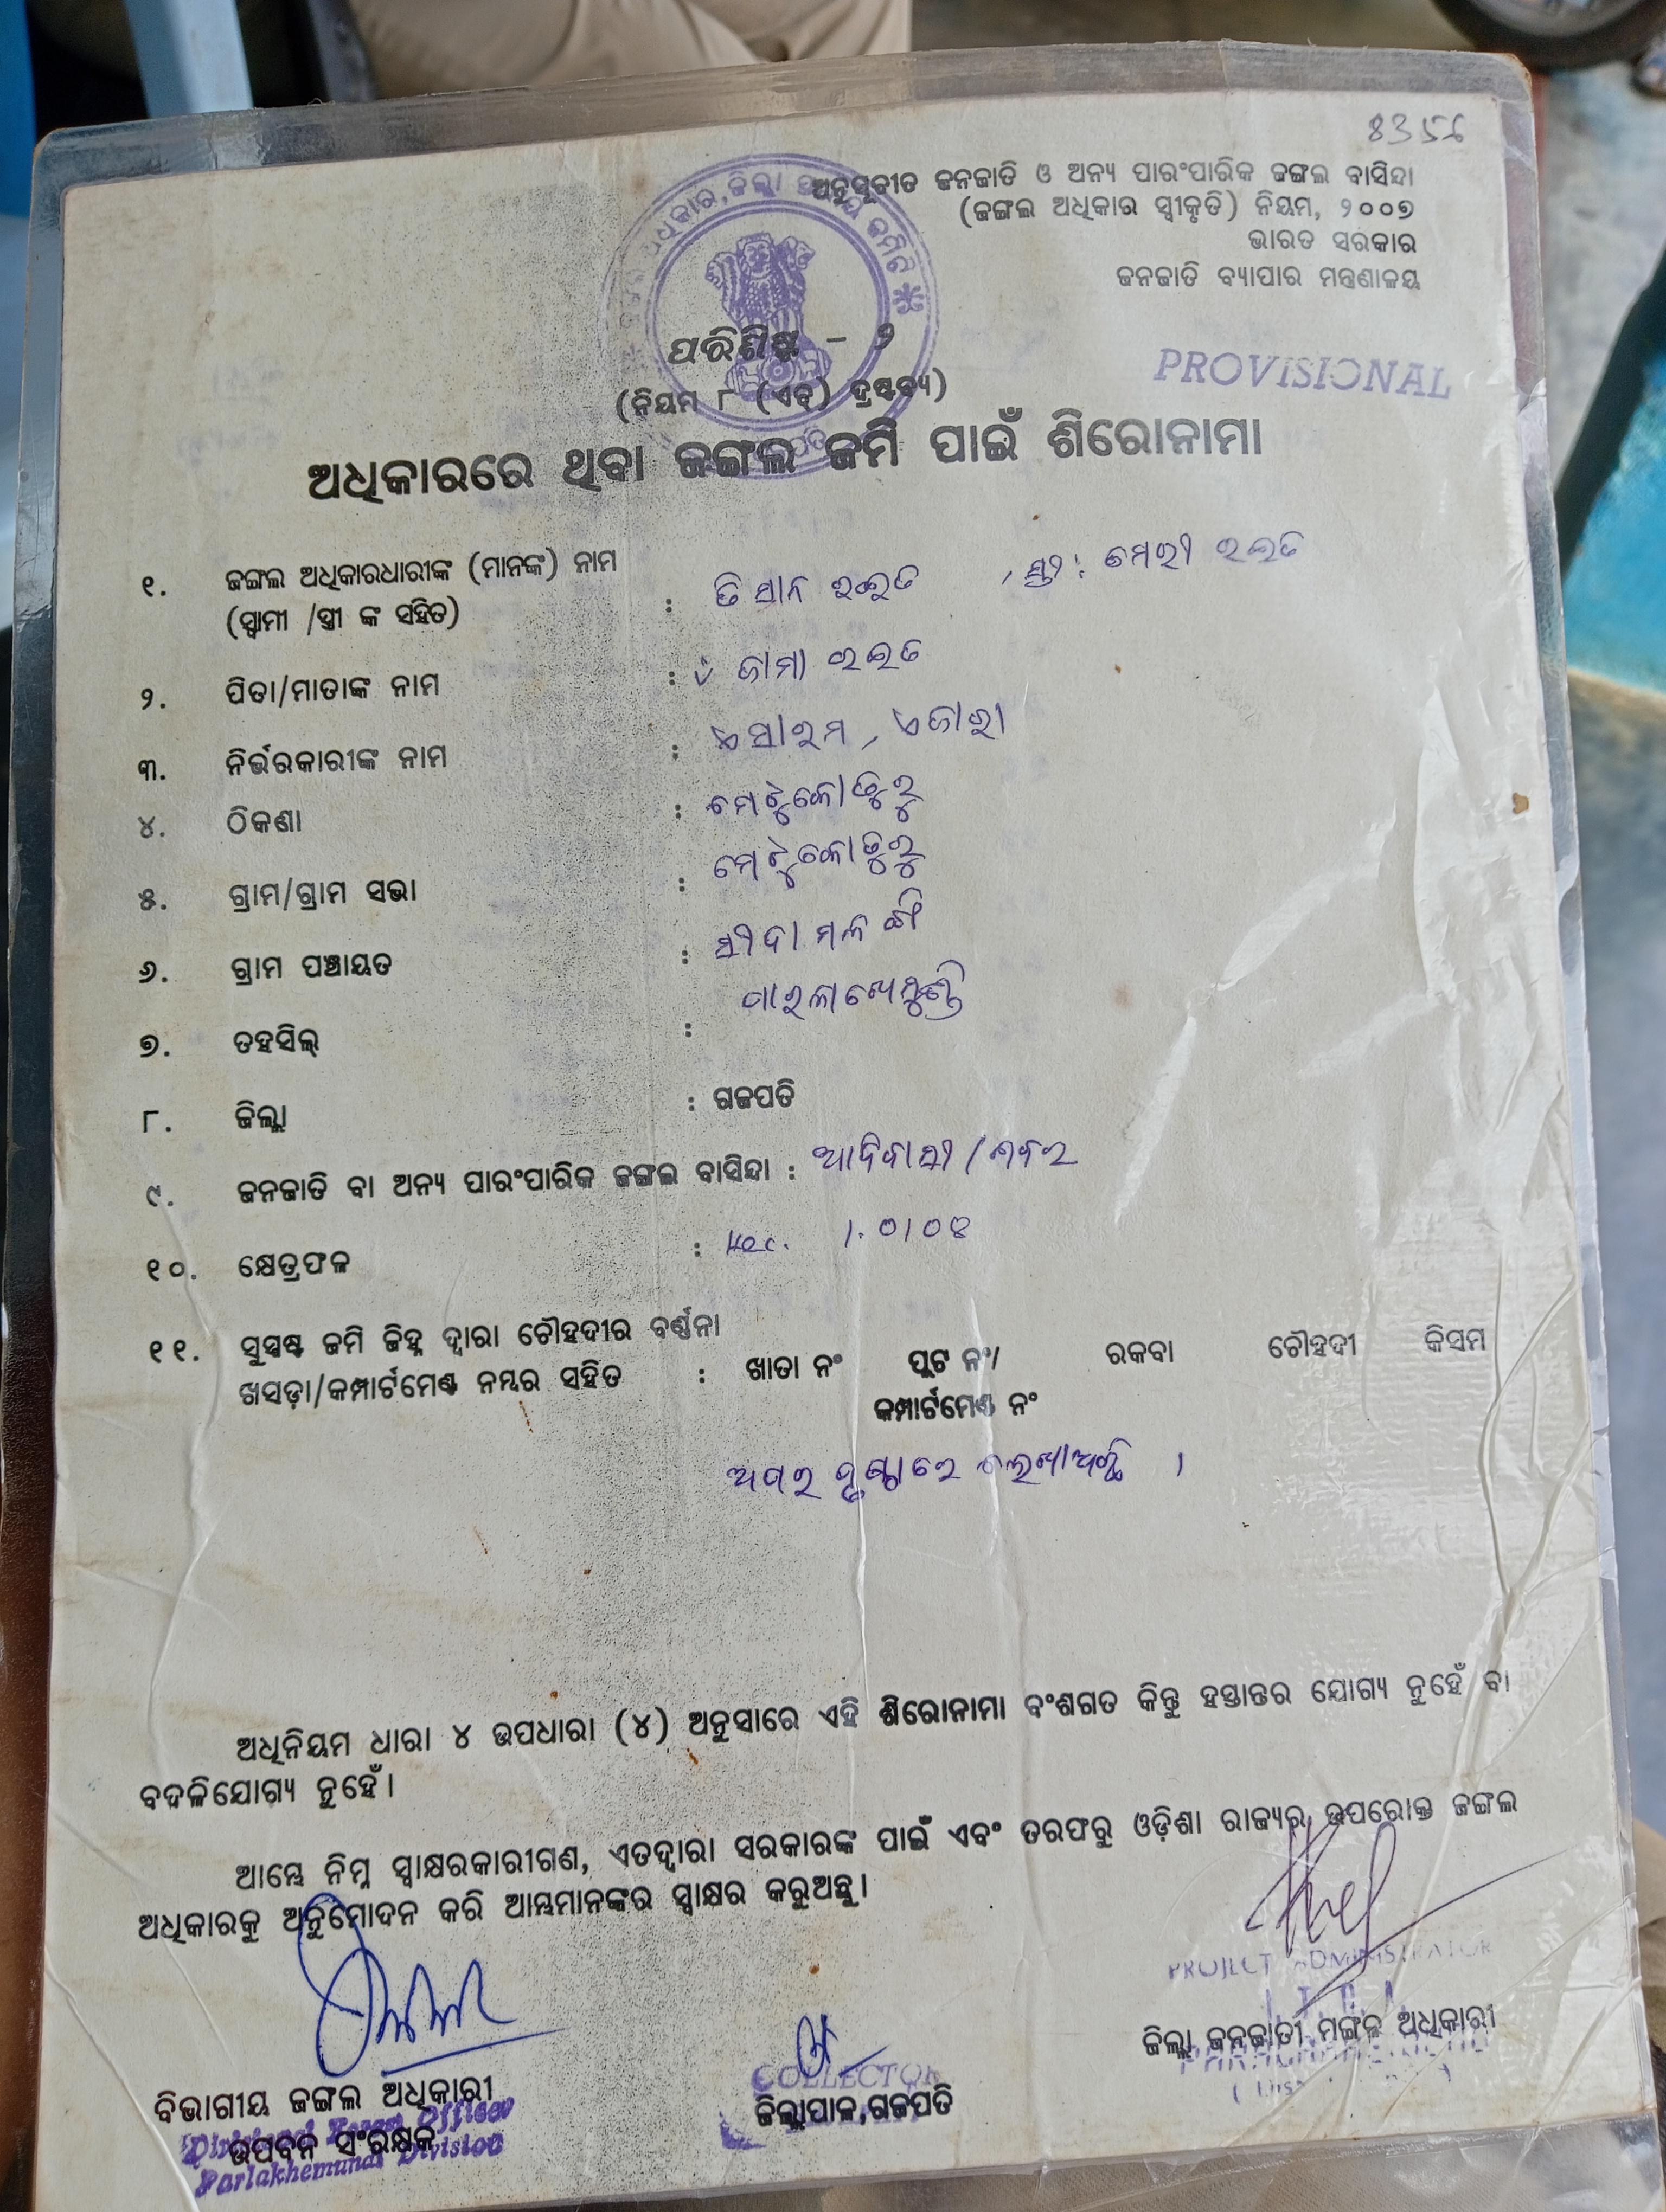 ଅନୁସୂଚୀତ ଜନଜାତି ଓ ଅନ୍ୟ ପାରଂପାରିକ ଜଙ୍ଗଲ ବାସିନ୍ଦା
(ଜଙ୍ଗଲ ଅଧିକାର ସ୍ୱୀକୃତି) ନିୟମ, ୨୦୦୭
ଭାରତ ସରକାର
ଜନଜାତି ବ୍ୟାପାର ମନ୍ତ୍ରଣାଳୟ
PROVISIONAL
ପରିଶିଷ୍ଟ - ୨
(ନିୟମ ୮ (ଏଚ୍) ଦ୍ରଷ୍ଟବ୍ୟ)
ଅଧିକାରରେ ଥିବା ଜଙ୍ଗଲ ଜମି ପାଇଁ ଶିରୋନାମା
୧. ଜଙ୍ଗଲ ଅଧିକାରଧାରୀଙ୍କ (ମାନଙ୍କ) ନାମ
(ସ୍ୱାମୀ /ସ୍ତ୍ରୀ ଙ୍କ ସହିତ) : ସ୍ତ୍ରୀ: ମେରୀ ରଇତ
୨. ପିତା/ମାତାଙ୍କ ନାମ : ଜାମା ରଇତ
୩. ନିର୍ଭରକାରୀଙ୍କ ନାମ :
୪. ଠିକଣା :
୫. ଗ୍ରାମ/ଗ୍ରାମ ସଭା :
୬. ଗ୍ରାମ ପଞ୍ଚାୟତ :
୭. ତହସିଲ୍ : ପାରଳାଖେମୁଣ୍ଡି
୮. ଜିଲ୍ଲା : ଗଜପତି
୯. ଜନଜାତି ବା ଅନ୍ୟ ପାରଂପାରିକ ଜଙ୍ଗଲ ବାସିନ୍ଦା : ଆଦିବାସୀ / ଶବର
୧୦. କ୍ଷେତ୍ରଫଳ : Hec. 1.0104
୧୧. ସୁସ୍ପଷ୍ଟ ଜମି ଚିହ୍ନ ଦ୍ୱାରା ଚୌହଦୀର ବର୍ଣ୍ଣନା
ଖସଡ଼ା/କମ୍ପାର୍ଟମେଣ୍ଟ ନମ୍ବର ସହିତ : ଖାତା ନଂ ପ୍ଲଟ ନଂ/ ରକବା ଚୌହଦୀ କିସମ
କମ୍ପାର୍ଟମେଣ୍ଟ ନଂ
ଅପର ପୃଷ୍ଠାରେ ଲେଖାଅଛି ।
ଅଧିନିୟମ ଧାରା ୪ ଉପଧାରା (୪) ଅନୁସାରେ ଏହି ଶିରୋନାମା ବଂଶଗତ କିନ୍ତୁ ହସ୍ତାନ୍ତର ଯୋଗ୍ୟ ନୁହେଁ ବା
ବଦଳିଯୋଗ୍ୟ ନୁହେଁ।
ଆମ୍ଭେ ନିମ୍ନ ସ୍ୱାକ୍ଷରକାରୀଗଣ, ଏତଦ୍ୱାରା ସରକାରଙ୍କ ପାଇଁ ଏବଂ ତରଫରୁ ଓଡ଼ିଶା ରାଜ୍ୟର ଉପରୋକ୍ତ ଜଙ୍ଗଲ
ଅଧିକାରକୁ ଅନୁମୋଦନ କରି ଆମ୍ଭମାନଙ୍କର ସ୍ୱାକ୍ଷର କରୁଅଛୁ।
PROJECT ADMINISTRATOR
ଜିଲ୍ଲା ଜନଜାତୀ ମଙ୍ଗଳ ଅଧିକାରୀ
COLLECTOR
ଜିଲ୍ଲାପାଳ,ଗଜପତି
ବିଭାଗୀୟ ଜଙ୍ଗଲ ଅଧିକାରୀ
Divisional Forest Officer
ଉପବନ ସଂରକ୍ଷକ
Parlakhemundi Division